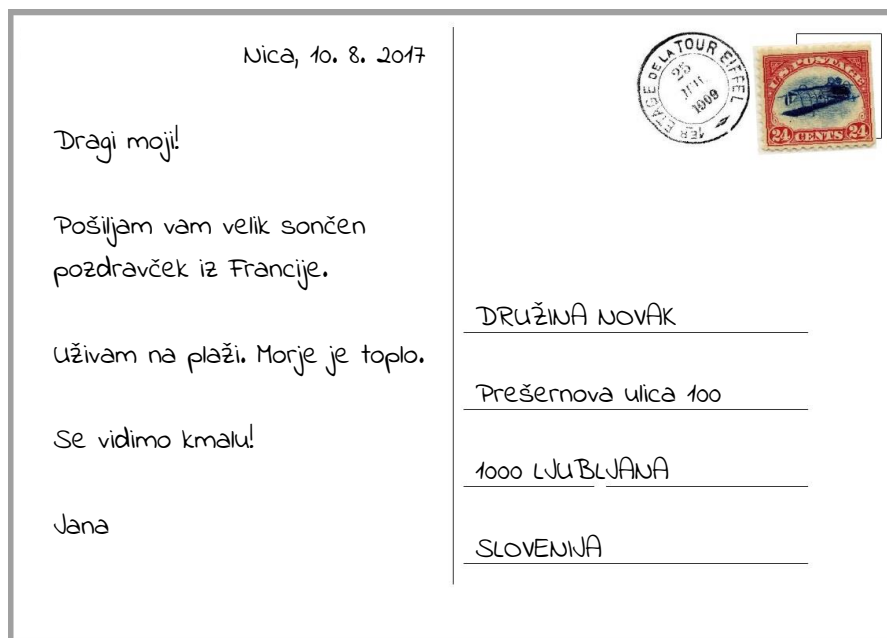 Nica, 10. 8. 2017
Dragi moji!
Pošiljam vam velik sončen
pozdravček iz Francije.
Uživam na plaži. Morje je toplo.
Se vidimo kmalu!
Jana
1ER ETAGE DE LA TOUR EIFFEL
25
1909
U.S. POSTAGE
24 CENTS 24
DRUŽINA NOVAK
Prešernova ulica 100
1000 LJUBLJANA
SLOVENIJA